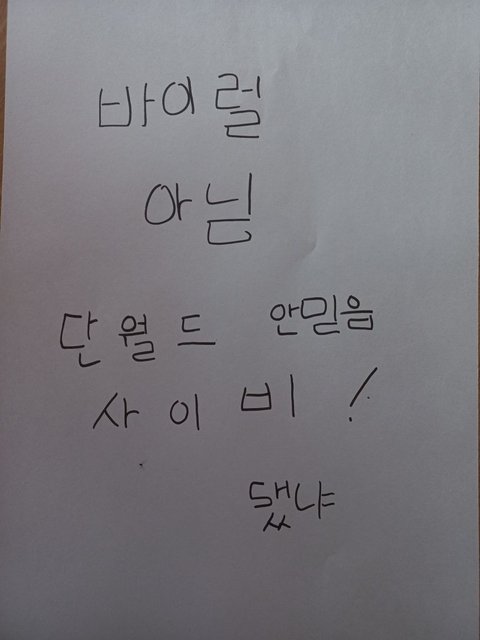 바이럴
아님
단월드 안믿음
사이비!
됐냐